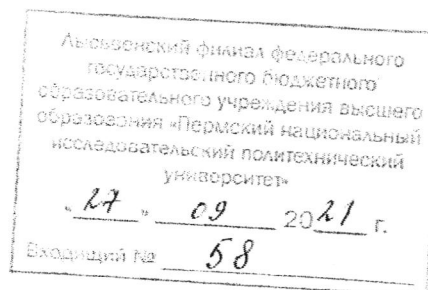 Лысьвенский филиал федерального
государственного бюджетного
образовательного учреждения высшего
образования «Пермский национальный
исследовательский политехнический
университет»
«27» 09 2021 г.
Входящий № 58